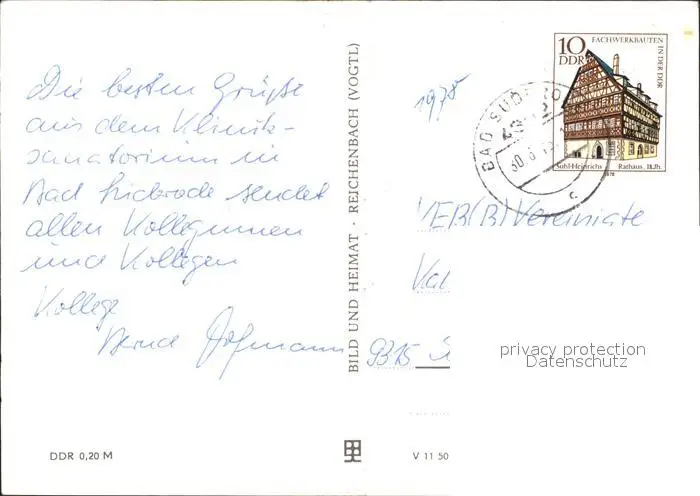 Die besten Grüße
aus dem Klinik-
sanatorium in
Bad Suderode sendet
allen Kolleginnen
und Kollegen
Kollege
Bernd Hofmann
DDR 0,20 M
BILD UND HEIMAT · REICHENBACH (VOGTL)
V 11 50
1978
BAD SUDERO
30.
c
10
DDR
FACHWERKBAUTEN
IN DER DDR
Suhl-Heinrichs Rathaus, 18.Jh.
1978
VEB(B) Vereinigte
9315
privacy protection
Datenschutz